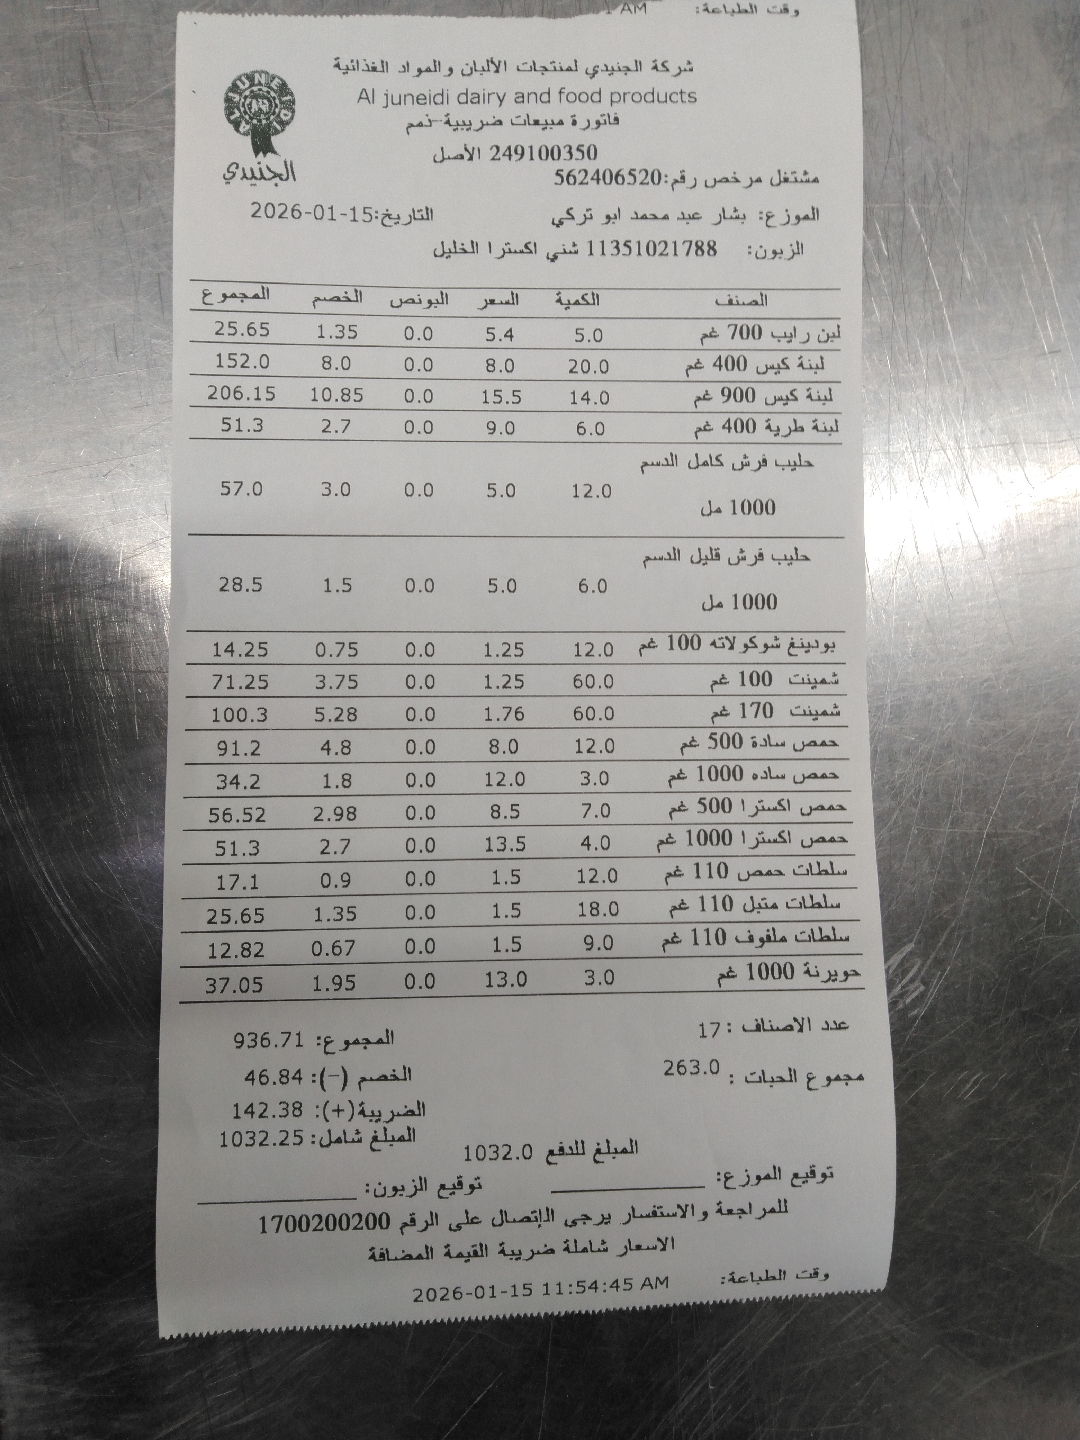 وقت الطباعة: 1 AM
شركة الجنيدي لمنتجات الألبان والمواد الغذائية
Al juneidi dairy and food products
فاتورة مبيعات ضريبية-ذمم
249100350 الأصل
AL JUNEIDI
الجنيدي
مشتغل مرخص رقم:562406520
الموزع: بشار عبد محمد ابو تركي التاريخ:2026-01-15
الزبون: 11351021788 شني اكسترا الخليل
الصنف الكمية السعر البونص الخصم المجموع
لبن رايب 700 غم 5.0 5.4 0.0 1.35 25.65
لبنة كيس 400 غم 20.0 8.0 0.0 8.0 152.0
لبنة كيس 900 غم 14.0 15.5 0.0 10.85 206.15
لبنة طرية 400 غم 6.0 9.0 0.0 2.7 51.3
حليب فرش كامل الدسم
1000 مل 12.0 5.0 0.0 3.0 57.0
حليب فرش قليل الدسم
1000 مل 6.0 5.0 0.0 1.5 28.5
بودينغ شوكولاته 100 غم 12.0 1.25 0.0 0.75 14.25
شمينت 100 غم 60.0 1.25 0.0 3.75 71.25
شمينت 170 غم 60.0 1.76 0.0 5.28 100.3
حمص سادة 500 غم 12.0 8.0 0.0 4.8 91.2
حمص ساده 1000 غم 3.0 12.0 0.0 1.8 34.2
حمص اكسترا 500 غم 7.0 8.5 0.0 2.98 56.52
حمص اكسترا 1000 غم 4.0 13.5 0.0 2.7 51.3
سلطات حمص 110 غم 12.0 1.5 0.0 0.9 17.1
سلطات متبل 110 غم 18.0 1.5 0.0 1.35 25.65
سلطات ملفوف 110 غم 9.0 1.5 0.0 0.67 12.82
حويرنة 1000 غم 3.0 13.0 0.0 1.95 37.05
عدد الاصناف : 17 المجموع: 936.71
مجموع الحبات : 263.0 الخصم (-): 46.84
الضريبة(+): 142.38
المبلغ شامل: 1032.25
المبلغ للدفع 1032.0
توقيع الموزع: توقيع الزبون:
للمراجعة والاستفسار يرجى الإتصال على الرقم 1700200200
الاسعار شاملة ضريبة القيمة المضافة
وقت الطباعة: 2026-01-15 11:54:45 AM